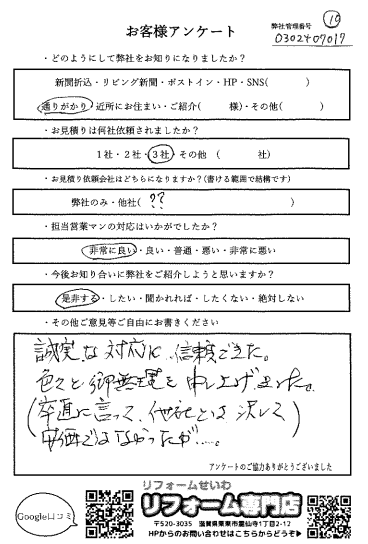 お客様アンケート
弊社管理番号
19
0302407017
・どのようにして弊社をお知りになりましたか?
新聞折込・リビング新聞・ポストイン・HP・SNS( )
通りがかり・近所にお住まい・ご紹介( 様)・その他( )
・お見積りは何社依頼されましたか?
1社・2社・3社・その他 ( 社)
・お見積り依頼会社はどちらになりますか?(書ける範囲で結構です)
弊社のみ・他社( ?? )
・担当営業マンの対応はいかがでしたか?
非常に良い・良い・普通・悪い・非常に悪い
・今後お知り合いに弊社をご紹介しようと思いますか?
是非する・したい・聞かれれば・したくない・絶対しない
・その他ご意見等ご自由にお書きください
誠実な対応に、信頼できた。
色々と御無理を申し上げました。
(卒直に言って、他社とは決して
安価ではなかったが……。)
アンケートのご協力ありがとうございました
Google口コミ
リフォームせいわ
リフォーム専門店
〒520-3035 滋賀県栗東市霊仙寺1丁目2-12
HPからのお問い合わせはこちらからどうぞ▶